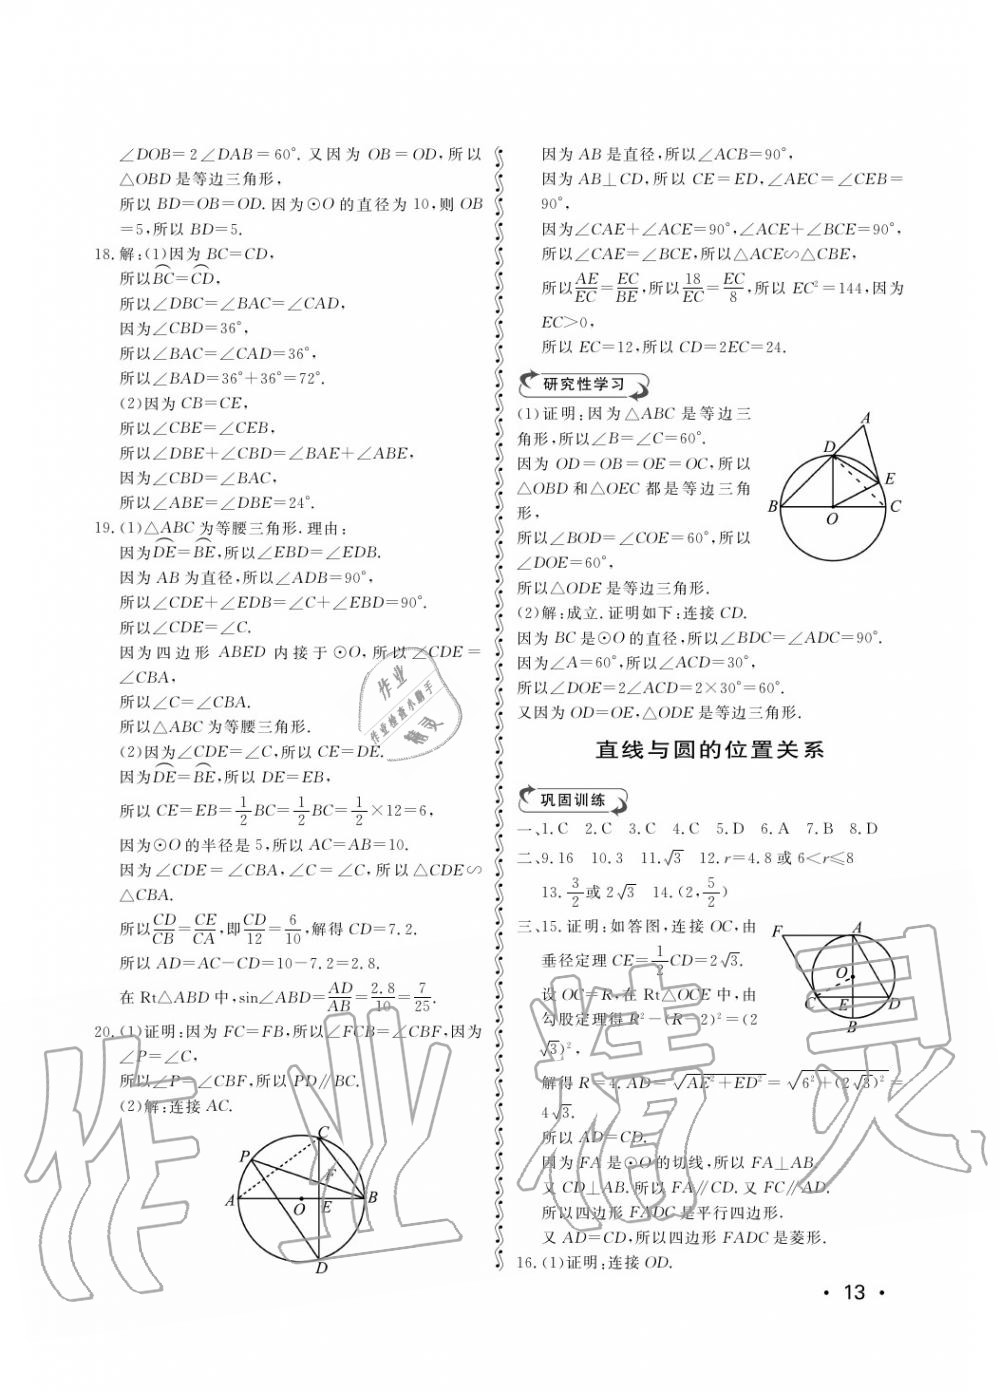 ∠DOB=2∠DAB=60°. 又因为 OB=OD,所以
△OBD 是等边三角形,
所以 BD=OB=OD. 因为⊙O 的直径为 10,则 OB
=5,所以 BD=5.
18. 解:(1)因为 BC=CD,
所以⌒BC=⌒CD,
所以∠DBC=∠BAC=∠CAD,
因为∠CBD=36°,
所以∠BAC=∠CAD=36°,
所以∠BAD=36°+36°=72°.
(2)因为 CB=CE,
所以∠CBE=∠CEB,
所以∠DBE+∠CBD=∠BAE+∠ABE,
因为∠CBD=∠BAC,
所以∠ABE=∠DBE=24°.
19. (1)△ABC 为等腰三角形. 理由:
因为⌒DE=⌒BE,所以∠EBD=∠EDB.
因为 AB 为直径,所以∠ADB=90°,
所以∠CDE+∠EDB=∠C+∠EBD=90°.
所以∠CDE=∠C.
因为四边形 ABED 内接于⊙O,所以∠CDE=
∠CBA,
所以∠C=∠CBA.
所以△ABC 为等腰三角形.
(2)因为∠CDE=∠C,所以 CE=DE.
因为⌒DE=⌒BE,所以 DE=EB,
所以 CE=EB=1/2 BC=1/2 BC=1/2×12=6,
因为⊙O 的半径是 5,所以 AC=AB=10.
因为∠CDE=∠CBA,∠C=∠C,所以△CDE∽
△CBA.
所以CD/CB=CE/CA,即CD/12=6/10,解得 CD=7.2.
所以 AD=AC-CD=10-7.2=2.8.
在 Rt△ABD 中,sin∠ABD=AD/AB=2.8/10=7/25.
20. (1)证明:因为 FC=FB,所以∠FCB=∠CBF,因为
∠P=∠C,
所以∠P=∠CBF,所以 PD∥BC.
(2)解:连接 AC.
C
P
F
A
O
E
B
D
因为 AB 是直径,所以∠ACB=90°,
因为 AB⊥CD,所以 CE=ED,∠AEC=∠CEB=
90°,
因为∠CAE+∠ACE=90°,∠ACE+∠BCE=90°,
所以∠CAE=∠BCE,所以△ACE∽△CBE,
所以AE/EC=EC/BE,所以18/EC=EC/8,所以 EC²=144,因为
EC>0,
所以 EC=12,所以 CD=2EC=24.
研究性学习
(1)证明:因为△ABC 是等边三
角形,所以∠B=∠C=60°.
因为 OD=OB=OE=OC,所以
△OBD 和△OEC 都是等边三角
形,
所以∠BOD=∠COE=60°,所以
∠DOE=60°,
所以△ODE 是等边三角形.
A
D
E
B
O
C
(2)解:成立. 证明如下:连接 CD.
因为 BC 是⊙O 的直径,所以∠BDC=∠ADC=90°.
因为∠A=60°,所以∠ACD=30°,
所以∠DOE=2∠ACD=2×30°=60°.
又因为 OD=OE,△ODE 是等边三角形.
直线与圆的位置关系
巩固训练
一、1. C 2. C 3. C 4. C 5. D 6. A 7. B 8. D
二、9. 16 10. 3 11. √3 12. r=4.8 或 6<r≤8
13. 3/2 或 2√3 14. (2, 5/2)
三、15. 证明:如答图,连接 OC,由
垂径定理 CE=1/2 CD=2√3.
设 OC=R,在 Rt△OCE 中,由
勾股定理得 R²-(R-2)²=(2
√3)²,
F
A
O
C
E
D
B
解得 R=4. AD=√AE²+ED²=√6²+(2√3)²=
4√3.
所以 AD=CD.
因为 FA 是⊙O 的切线,所以 FA⊥AB.
又 CD⊥AB. 所以 FA∥CD. 又 FC∥AD.
所以四边形 FADC 是平行四边形.
又 AD=CD,所以四边形 FADC 是菱形.
16. (1)证明:连接 OD.
· 13 ·
作业
作业检查小助手
精灵
作业精灵